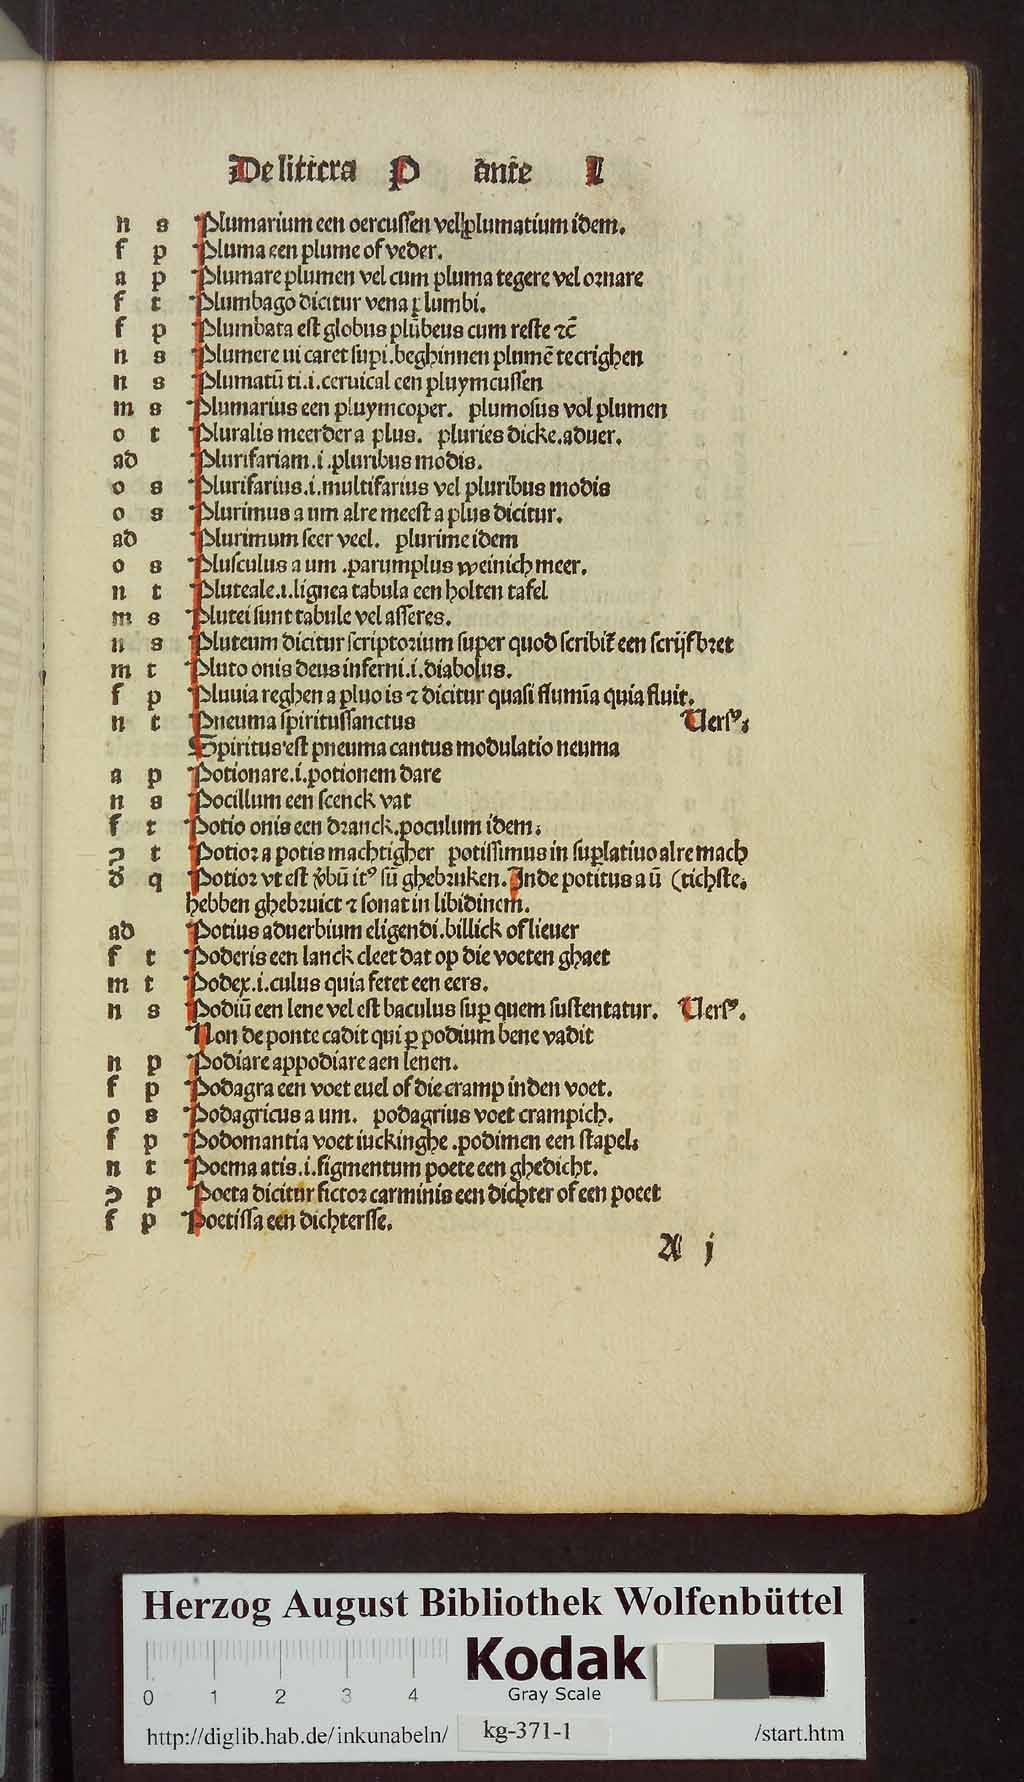 De littera P ante L
n s Plumarium een oercussen vel plumatium idem.
f p Pluma een plume of veder.
a p Plumare plumen vel cum pluma tegere vel ornare
f t Plumbago dicitur vena plumbi.
f p Plumbata est globus plūbeus cum reste ⁊c̄
n s Plumere ui caret supi .beghinnen plumē te crighen
n s Plumatū ti .i. ceruical een pluymcussen
m s Plumarius een pluymcoper. plumosus vol plumen
o t Pluralis meerder a plus. pluries dicke .aduer.
ad Plurifariam .i. pluribus modis.
o s Plurifarius .i. multifarius vel pluribus modis
o s Plurimus a um alre meest a plus dicitur.
ad Plurimum seer veel. plurime idem
o s Plusculus a um .parumplus weinich meer.
n t Pluteale .i. lignea tabula een holten tafel
m s Plutei sunt tabule vel asseres.
n s Pluteum dicitur scriptorium super quod scribit᷑ een scrijfbret
m t Pluto onis deus inferni .i. diabolus.
f p Pluuia reghen a pluo is ⁊ dicitur quasi flumīa quia fluit.
n t Pneuma spiritussanctus Versꝰ.
Spiritus est pneuma cantus modulatio neuma
a p Potionare .i. potionem dare
n s Pocillum een scenck vat
f t Potio onis een dranck .poculum idem.
ꝯ t Potior a potis machtigher potissimus in suꝑlatiuo alre mach
q Potior vt est v̄bū itꝰ sū ghebruken. Inde potitus a ū (tichste.
hebben ghebruict ⁊ sonat in libidinem.
ad Potius aduerbium eligendi .billick of lieuer
f t Poderis een lanck cleet dat op die voeten ghaet
m t Podex .i. culus quia fetet een eers.
n s Podiū een lene vel est baculus suꝑ quem sustentatur. Versꝰ.
Non de ponte cadit qui ꝑ podium bene vadit
n p Podiare appodiare aen lenen.
f p Podagra een voet euel of die cramp inden voet.
o s Podagricus a um. podagrius voet crampich.
f p Podomantia voet iuckinghe .podimen een stapel.
n t Poema atis .i. figmentum poete een ghedicht.
ꝯ p Poeta dicitur fictor carminis een dichter of een poeet
f p Poetissa een dichtersse.
A j
Herzog August Bibliothek Wolfenbüttel
Kodak
Gray Scale
0 1 2 3 4
http://diglib.hab.de/inkunabeln/ kg-371-1 /start.htm